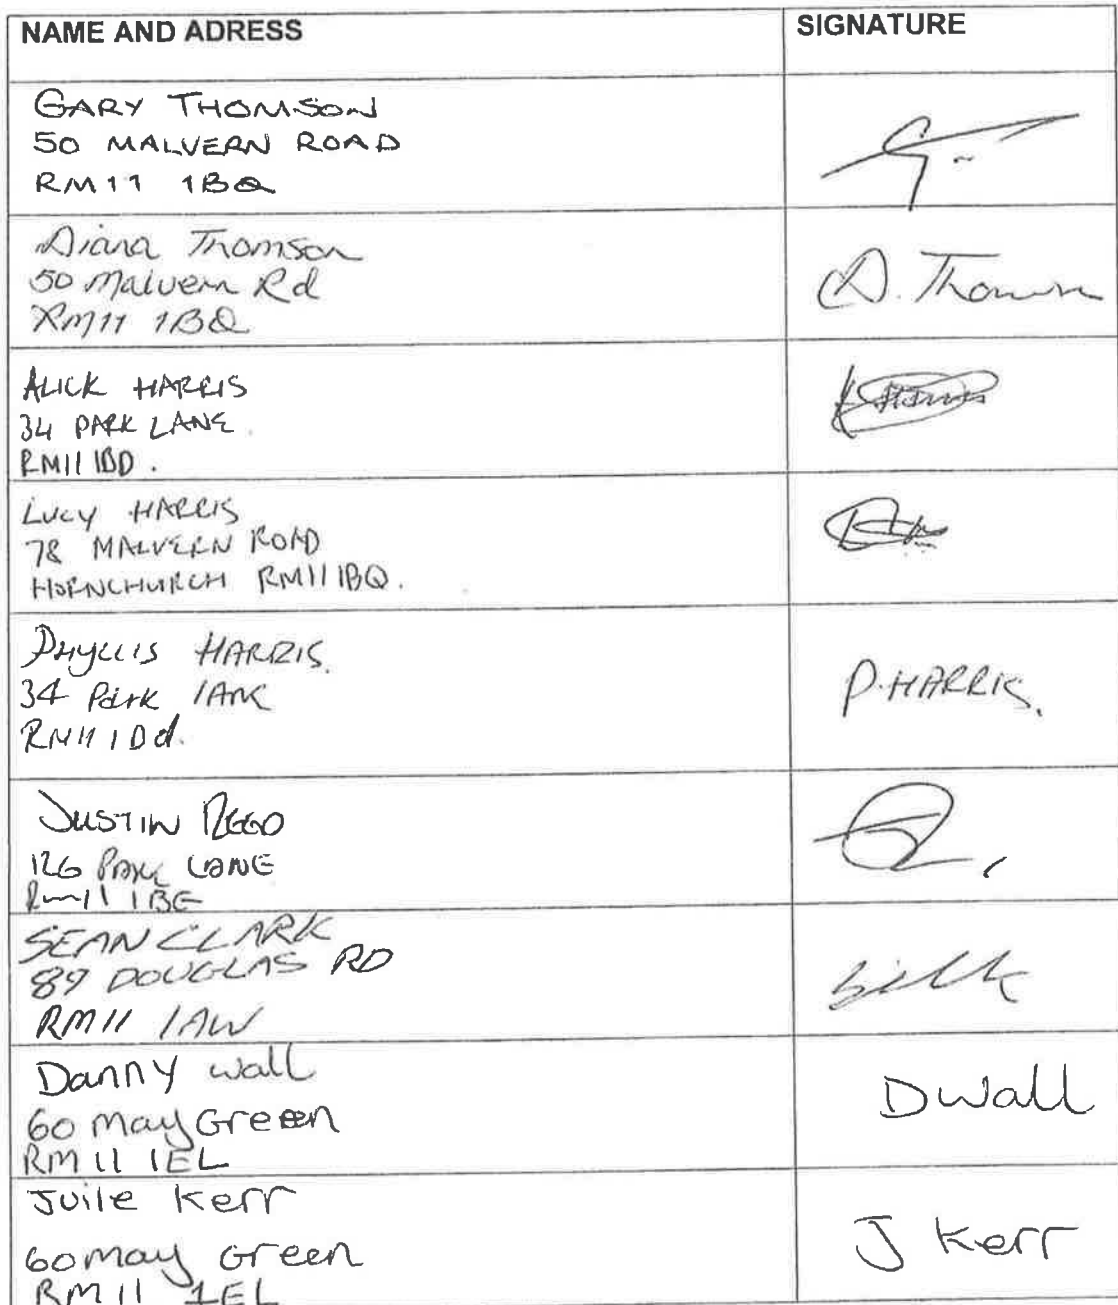 NAME AND ADRESS
SIGNATURE
GARY THOMSON
50 MALVERN ROAD
RM11 1BQ
Diana Thomson
50 Malvern Rd
RM11 1BQ
D. Thomson
ALICK HARRIS
34 PARK LANE
RM11 1BD.
LUCY HARRIS
78 MALVERN ROAD
HORNCHURCH RM11 1BQ.
PHYLLIS HARRIS.
34 Park lANE
RM11 1Dd.
P. HARRIS.
JUSTIN REED
126 PARK LANE
Rm11 1BE
SEAN CLARK
89 DOUGLAS RD
RM11 1AW
Danny wall
60 may Green
RM11 1EL
D wall
Juile Kerr
60 may Green
RM11 1EL
J Kerr